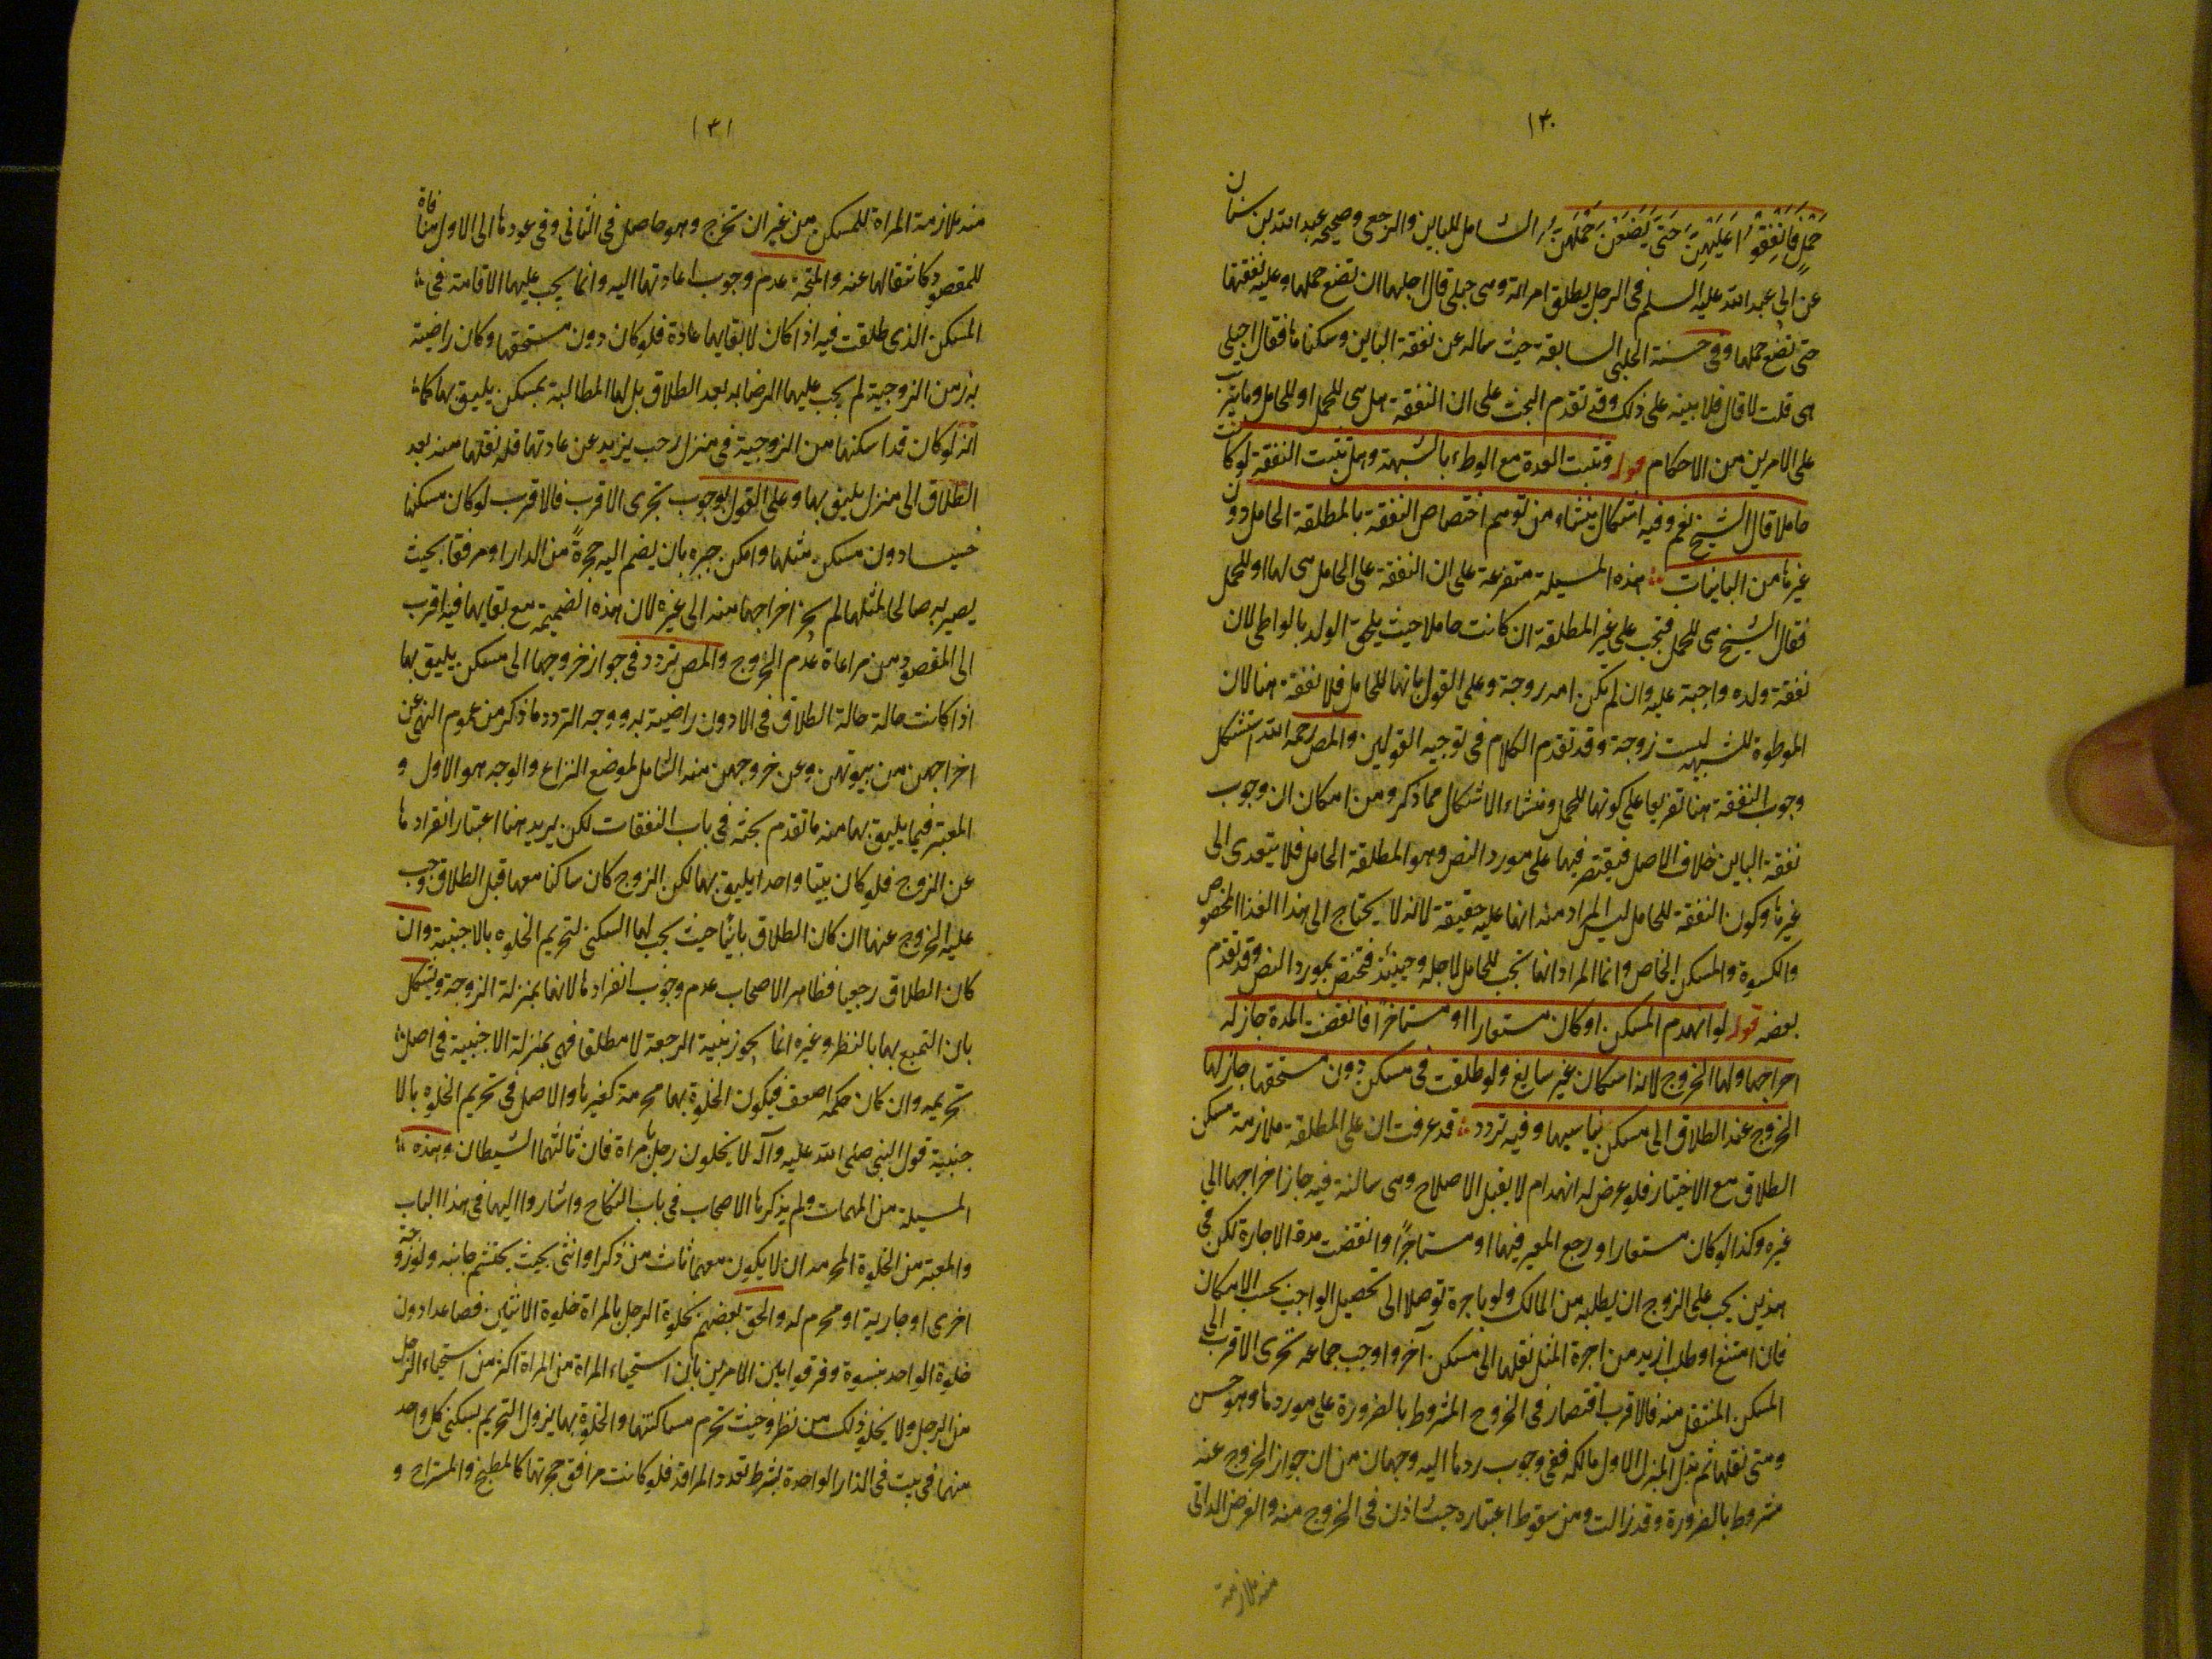 ١٣٠
حَمْلٍ فَاَنْفِقُوْا عَلَيْهِنَّ حَتّى يَضَعْنَ حَمْلَهُنَّ الشامل للباين والرجعى وصحيحه عبد الله بن سنان
عن ابى عبد الله عليه السلم فى الرجل يطلق امراته وهى حبلى قال اجلها ان تضع حملها وعليه نفقتها
حتى تضع حملها وفى حسنة الحلبى السابقة حيث ساله عن نفقة الباين وسكناها فقال احبلى
هى قلت لا قال فلا بينه على ذلك وقد تقدم البحث على ان النفقة هل هى للحمل او للحامل وما يترتب
على الامرين من الاحكام قوله وتثبت العدة مع الوطء بالشبهة وهل تثبت النفقة لو كانت
حاملا قال الشيخ نعم وفيه اشكال ينشاء من توهم اختصاص النفقة بالمطلقة الحامل دون
غيرها من البائنات هذه المسيلة متفرعة على ان النفقة على الحامل هى لها او للحمل
فقال الشيخ هى للحمل فتجب على غير المطلقة ان كانت حاملا حيث يلحق الولد بالواطى لان
نفقة ولده واجبة عليه وان لم يكن امه زوجة وعلى القول بانها للحامل فلا نفقة هنا لان
الموطوة للشبهة ليست زوجة وقد تقدم الكلام فى توجيه القولين والمص رحمه الله استشكل
وجوب النفقة هنا تفريعا على كونها للحمل ومنشاء الاشكال مما ذكر ومن امكان ان وجوب
نفقة الباين خلاف الاصل فيقتصر فيها على مورد النص وهو المطلقة الحامل فلا يتعدى الى
غيرها وكون النفقة للحامل ليس المراد منه انها عليه حقيقة لانه لا يحتاج الى هذا الغذا المخصوص
والكسوة والمسكن الخاص وانما المراد انها تجب للحامل لاجله وحينئذ فتختص بمورد النص وقد تقدم
بعضه قوله لو انهدم المسكن او كان مستعارا او مستاجرا فانقضت المدة جاز له
اخراجها ولها الخروج لانه اسكان غير سايغ ولو طلقت فى مسكن دون مستحقها جاز لها
الخروج عند الطلاق الى مسكن يناسبها وفيه تردد قد عرفت ان على المطلقة ملازمة مسكن
الطلاق مع الاختيار فلو عرض له انهدام لا يقبل الاصلاح وهى ساكنة فيه جاز اخراجها الى
غيره وكذا لو كان مستعارا ورجع المعير فيها او مستاجرا وانقضت مدة الاجارة لكن فى
هذين يجب على الزوج ان يطلبه من المالك ولو باجرة توصلا الى تحصيل الواجب بحسب الامكان
فان امتنع او طلب ازيد من اجرة المثل نقلها الى مسكن آخر واوجب جماعه تحرى الاقرب الى
المسكن المنتقل منه فالاقرب اقتصار فى الخروج المشروط بالضرورة على موردها وهو حسن
ومتى نقلها ثم بذل المنزل الاول مالكه ففى وجوب ردها اليه وجهان من ان جواز الخروج عنه
مشروط بالضرورة وقد زالت ومن سقوط اعتباره حيث اذن فى الخروج منه والغرض الذاتى
منه ملازمة
١٣١
منه ملازمة المراة للمسكن من غير ان تخرج وهو حاصل فى الثانى وفى عودها الى الاول منافاة
للمقصود كانتقالها عنه والمتجه عدم وجوب اعادتها اليه وانما يجب عليها الاقامة فى
المسكن الذى طلقت فيه اذا كان لايقا بها عادة فلو كان دون مستحقها وكان راضية
به زمن الزوجية لم يجب عليها الرضا به بعد الطلاق بل لها المطالبة بمسكن يليق بها كما
انه لو كان قد اسكنها من الزوجية فى منزل رحب يزيد عن عادتها فله نقلها منه بعد
الطلاق الى منزل يليق بها وعلى القول بوجوب تحرى الاقرب فالاقرب لو كان مسكنها
خسيسا دون مسكن مثلها وامكن جبره بان يضم اليه حجرةً من الدار او مرفقا بحيث
يصير به صالحا لمثلها لم يجز اخراجها منه الى غيره لان هذه الضميمة مع بقايها فيه اقرب
الى المقصود من مراعاة عدم الخروج والمص تردد فى جواز خروجها الى مسكن يليق بها
اذا كانت حالة حالة الطلاق فى الادون راضية به ووجه التردد ما ذكر من عموم النهى عن
اخراجهن من بيوتهن وعن خروجهن منه الشامل لموضع النزاع والوجه هو الاول و
المعتبر فيما يليق بها منه ما تقدم بحثه فى باب النفقات لكن يريد هنا اعتبار انفرادها
عن الزوج فلو كان بيتا واحدا يليق بها لكن الزوج كان ساكنا معها قبل الطلاق وجب
عليه الخروج عنها ان كان الطلاق بائنا حيث يجب لها السكنى لتحريم الخلوه بالاجنبية وان
كان الطلاق رجعيا فظاهر الاصحاب عدم وجوب انفرادها لانها بمنزلة الزوجة ويشكل
بان التمتع بها بالنظر وغيره انما يجوز بنية الرجعة لا مطلقا فهى بمنزلة الاجنبية فى اصل
تحريمه وان كان حكمه اضعف فيكون الخلوة بها محرمة كغيرها والاصل فى تحريم الخلوه بالا
جنبية قول النبى صلى الله عليه وآله لا يخلون رجل بامراة فان ثالثهما الشيطان وهذه
المسيلة من المهمات ولم يذكرها الاصحاب فى باب النكاح واشاروا اليها فى هذا الباب
والمعتبر من الخلوة المحرمه ان لا يكون معهما ثالث من ذكر او انثى بحيث يحتشم جانبه ولو زوجة
اخرى او جارية او محرم له والحق بعضهم بخلوة الرجل بالمراة خلوة الاثنين فصاعدا دون
خلوة الواحد بنسوة وفرقوا بين الامرين بان استحياء المراة من المراة اكثر من استحياء الرجل
من الرجل ولا يخلو ذلك من نظر وحيث تحرم مساكنتها والخلوة بها يزول التحريم بسكنى كل واحد
منهما فى بيت فى الدار الواحدة بشرط تعدد المرافق فلو كانت مرافق حجرتها كالمطبخ والمستراح و